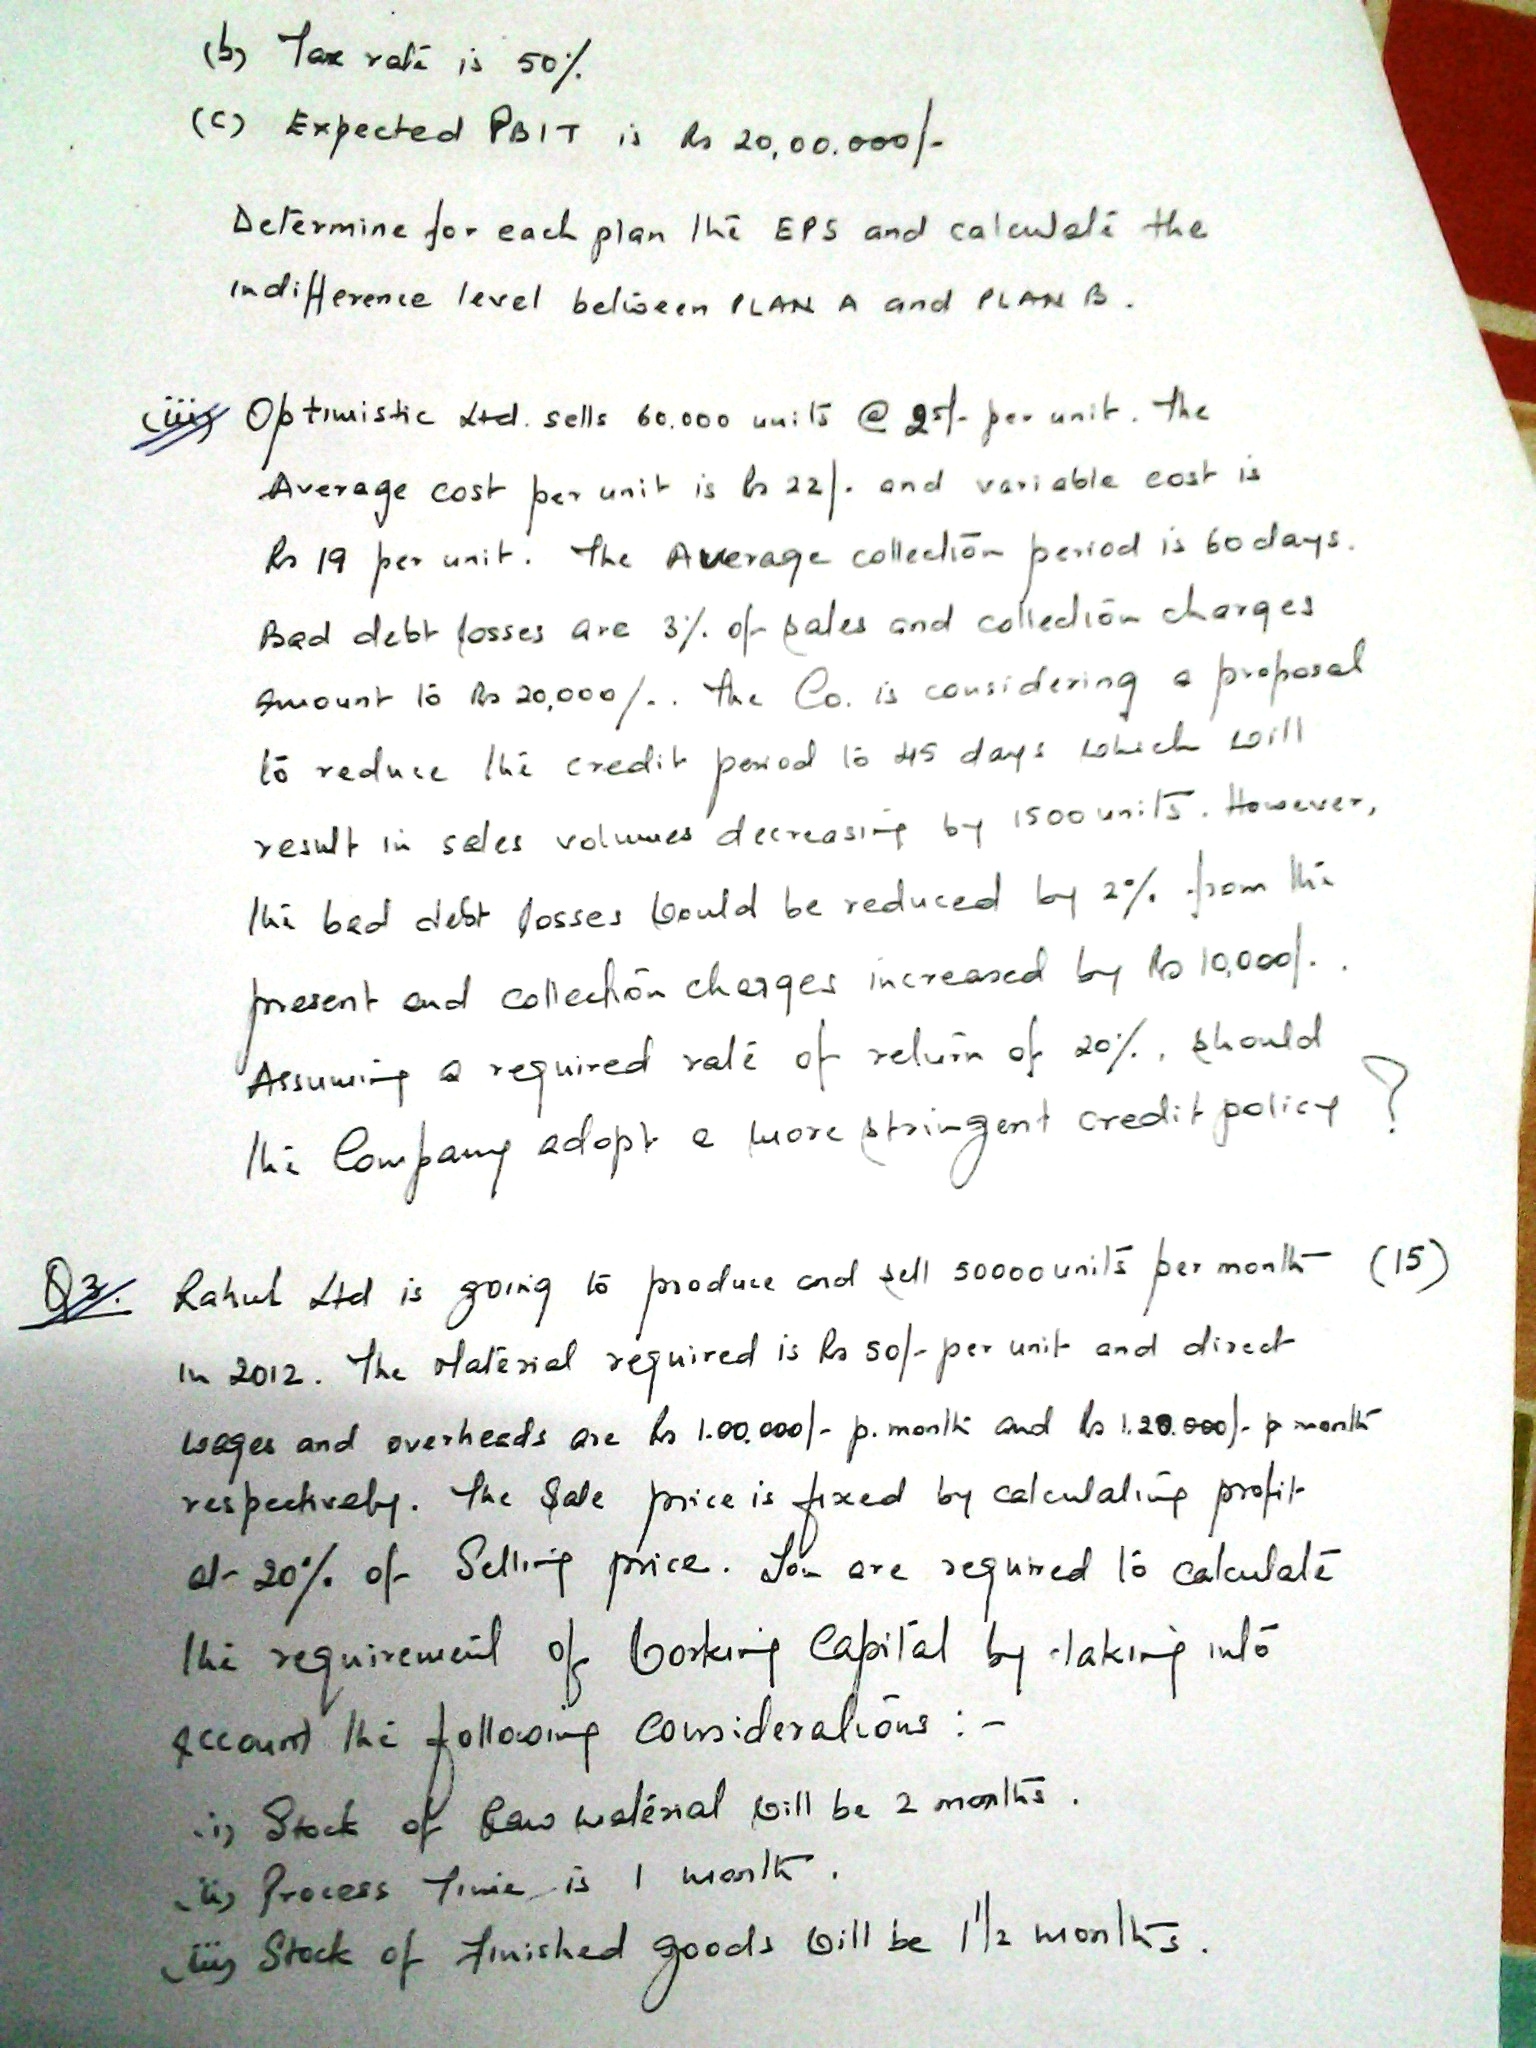 (b) Tax rate is 50%
(c) Expected PBIT is Rs 20,00.000/-
Determine for each plan the EPS and calculate the
indifference level between PLAN A and PLAN B.
(iii) Optimistic Ltd. sells 60.000 units @ 25/- per unit. The
Average cost per unit is Rs 22/- and variable cost is
Rs 19 per unit. The Average collection period is 60 days.
Bad debt losses are 3% of sales and collection charges
amount to Rs 20,000/-. The Co. is considering a proposal
to reduce the credit period to 45 days which will
result in sales volumes decreasing by 1500 units. However,
the bad debt losses would be reduced by 2% from the
present and collection charges increased by Rs 10,000/-.
Assuming a required rate of return of 20%, should
the Company adopt a more stringent credit policy ?
Q3. Rahul Ltd is going to produce and sell 50000 units per month (15)
in 2012. The Material required is Rs 50/- per unit and direct
wages and overheads are Rs 1.00.000/- p. month and Rs 1.20.000/- p month
respectively. The Sale price is fixed by calculating profit
at 20% of Selling price. You are required to calculate
the requirement of Working Capital by taking into
account the following considerations :-
i) Stock of Raw material will be 2 months.
ii) Process Time is 1 month.
iii) Stock of Finished goods will be 1 1/2 months.